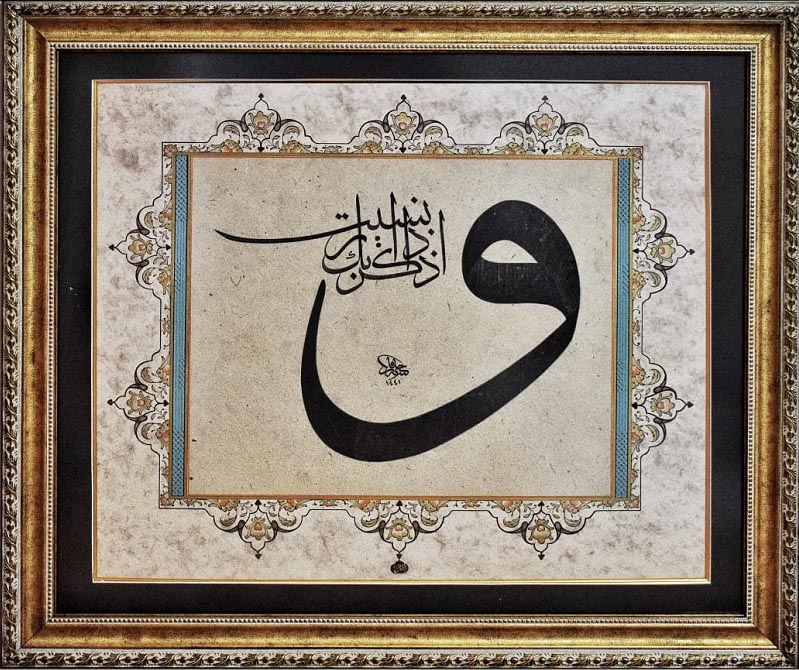 و
اذكر ربك اذا نسيت
١٤٤١